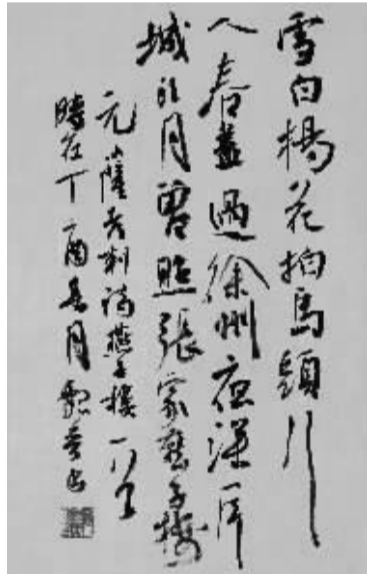 雪白楊花拍馬頭行
人春盡過徐州夜深一片
城頭月曾照張家燕子樓
元薩都剌詩燕子樓一首
時在丁酉春月